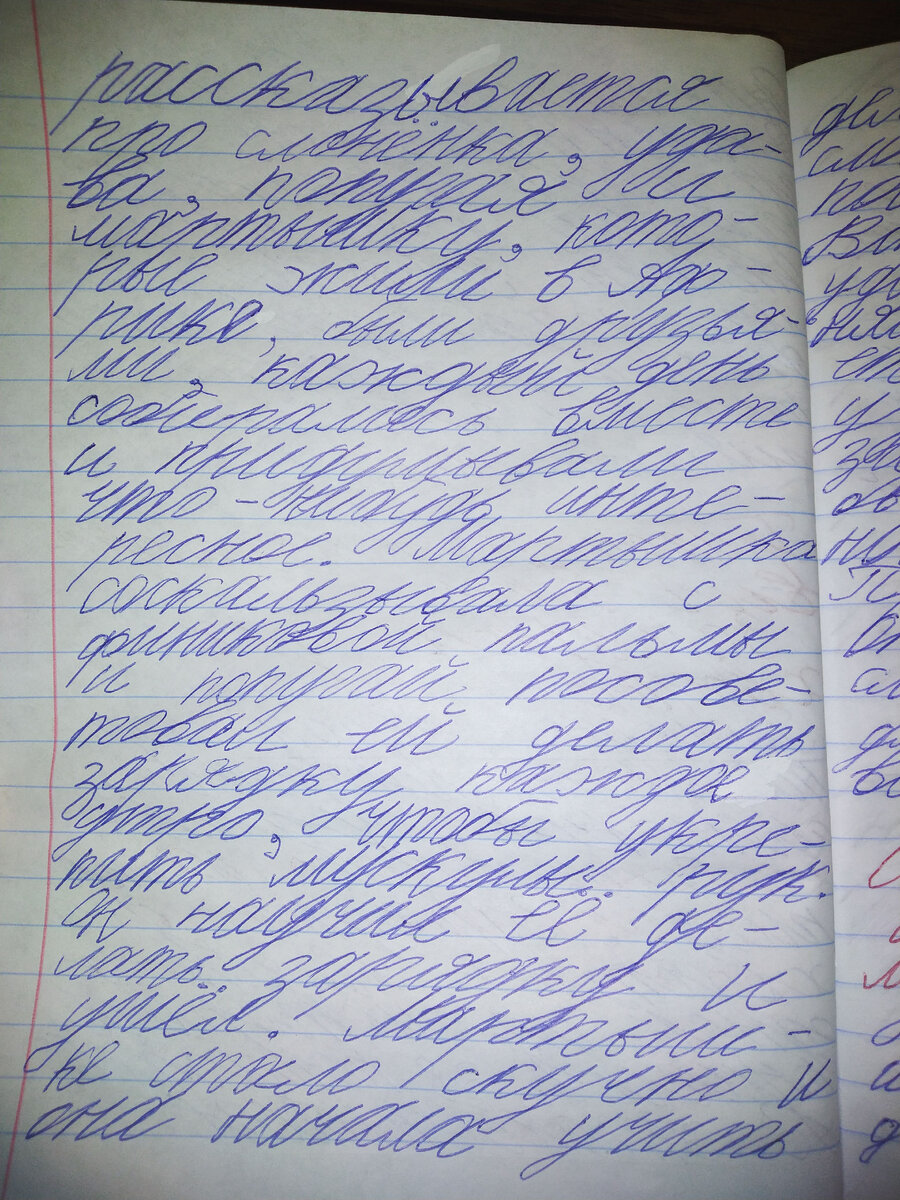 рассказывается
про слонёнка, уда-
ва, попугая и
мартышку, кото-
рые жили в Аф-
рике, были друзья-
ми, каждый день
собирались вместе
и придумывали
что-нибудь инте-
ресное. Мартышка
соскальзывала с
финиковой пальмы
и попугай посове-
товал ей делать
зарядку каждое
утро, чтобы укре-
пить мускулы рук.
Он научил её де-
лать зарядку и
ушёл. Мартыш-
ке стало скучно и
она начала учить